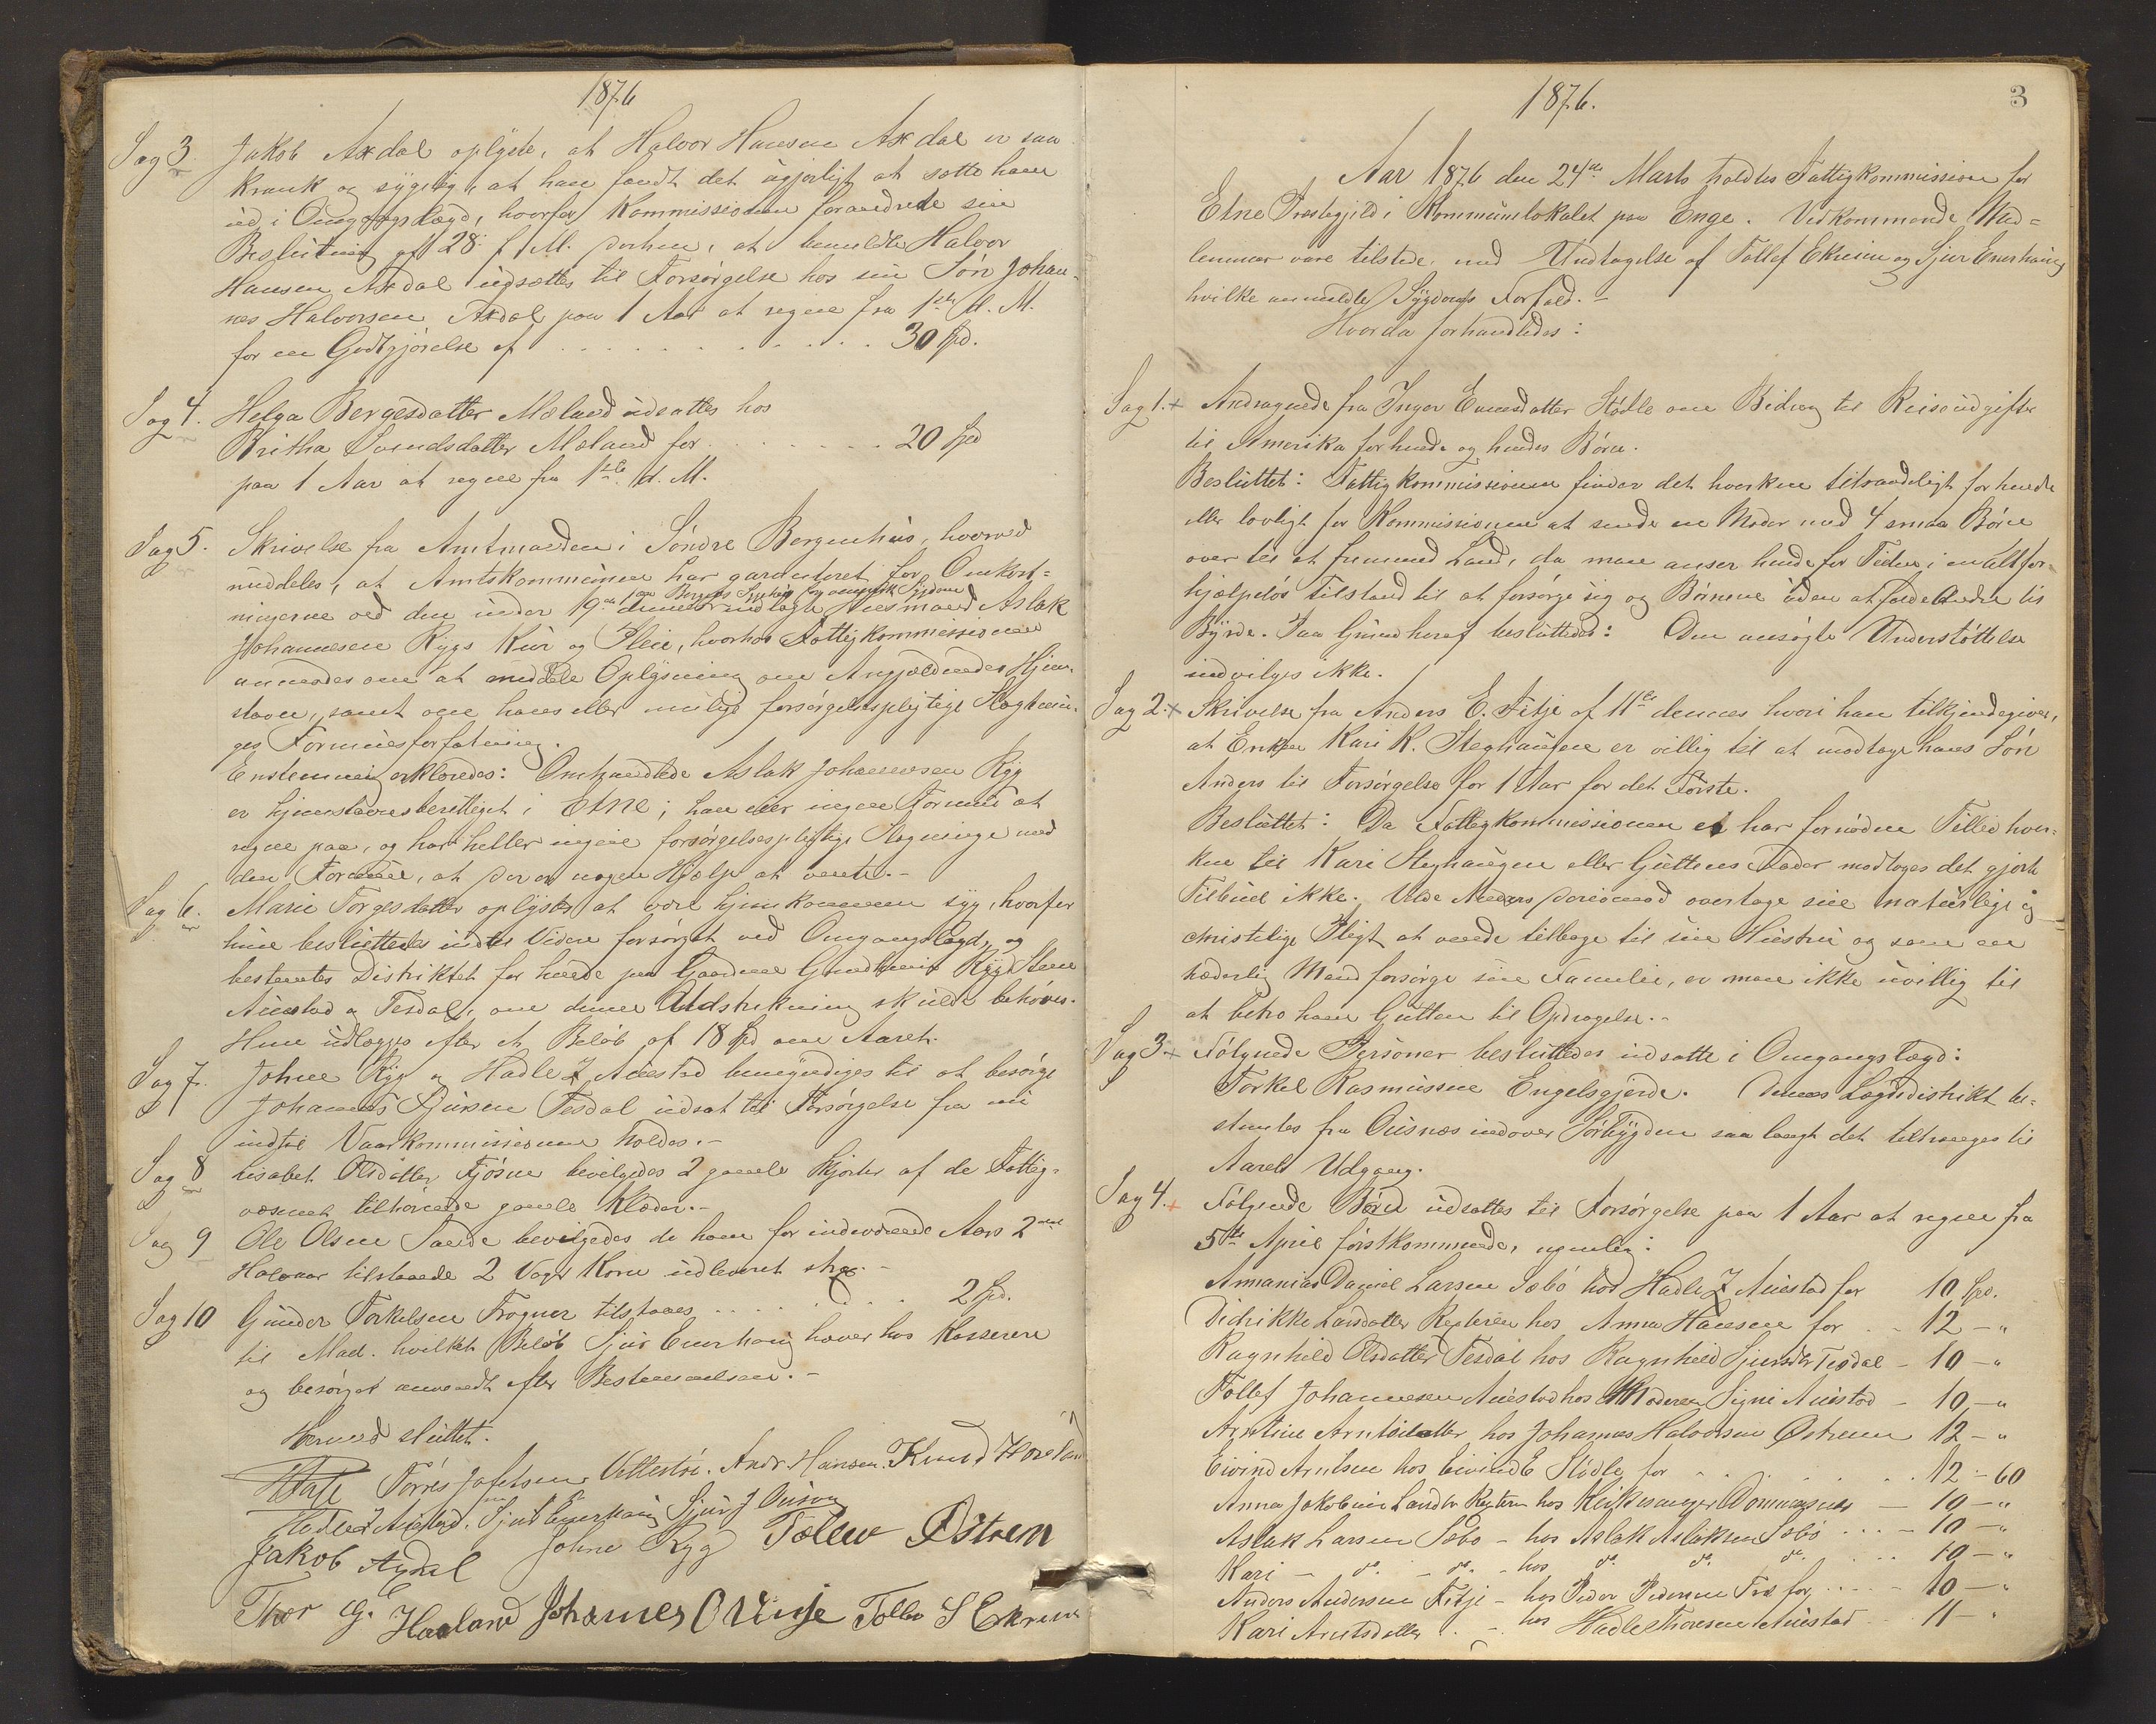 1876
Sag 3. Jakob Axdal oplyste, at Halvor Hansen Axdal er saa
krank og sygelig, at han fandt det ugjørligt at sette ham
ud i Omgangslægd, hvorfor Kommissionen forandrede sin
Beslutning af 28. f. M. derhen, at bemeldte Halvor
Hansen Axdal udsættes til Forsørgelse hos sin Søn Johan-
nes Halvorsen Axdal paa 1 Aar at regne fra 1ste d. M.
for en Godtgjørelse af . . . . . . . . . . . 30 Spd.
Sag 4. Helga Bergesdatter Mæland udsattes hos
Britha Svendsdatter Mæland for . . . . . . . 20 Spd
paa 1 Aar at regne fra 1ste d. M.
Sag 5. Skrivelse fra Amtmanden i Søndre Bergenhus, hvorved
meddeles, at Amtskommunen har garanteret for Omkost-
ningerne ved den under 19de dennes i Bergens Sygehus for venerisk Sygdom indlagte Huusmand Aslak
Johannesen Rygs Kur og Pleie, hvorhos Fattigkommissionen
anmodes om at meddele Oplysning om Angjældendes Hjem-
stavn, samt om hans eller mulige forsørgelsespligtige Slægtnin-
ges Formuesforfatning.
Enstemmig erklæredes: Omhandlede Aslak Johannesen Ryg
er hjemstavnsberettiget i Etne; han eier ingen Formue at
regne paa, og har heller ingen forsørgelsespligtige Slægtninge med
den Formue, at der er nogen Hjælp at vente.-
Sag 6. Marie Torgesdatter oplystes at være hjemkommen syg, hvorfor
hun besluttedes indtil Videre forsørget ved Omgangslægd, og
bestemtes Distriktet for hende paa Gaardene Grindheim Ryg Steine
Austad og Tesdal, om denne Udstrekning skulde behøves.
Hun udlægges efter et Beløb af 18 Spd om Aaret.
Sag 7. Johne Ryg og Hadle J Austad bemyndiges til at besørge
Johannes Sjursen Tesdal udsat til Forsørgelse fra nu
indtil Vaarkommissionen holdes.-
Sag 8 Lisabet Olsdatter Fjøsne bevilgedes 2 gamle Skjorter af de Fattig-
væsenet tilhørende gamle Klæder.-
Sag 9 Ole Olsen Sande bevilgedes de ham for indeværende Aars 2det
Halvaar tilstaaede 2 Voger Korn udleveret strax.-
Sag 10 Gunder Torkelsen Frogner tilstaaes . . . . . . . 2 Spd.
til Mad. hvilket Beløb Sjur Enerhaug hæver hos Kasserere
og besørget anvendt efter Bestemmelsen.-
Hermed sluttet.
Torres Jofetsen Vettestø. Andr. Hansen. Knud Hoveland
Hadle J Austad. Sjur L Enerhaug Sjur J Ousen
Jakob Axdal Johne Ryg Tollew Østrem
Thor G. Haaland Johannes O Vinje Tollew S Ekrem
1876. 3
Aar 1876 den 24de Marts holdtes Fattigkommission for
Etne Præstegjeld i Kommunelokalet paa Enge. Vedkommende Med-
lemmer vare tilstede, med Undtagelse af Tollef Ekrem og Sjur Enerhaug
hvilke anmeldte Sygdoms Forfald.-
Hvorda forhandledes:
Sag 1. + Andragende fra Inger Enersdatter Stødle om Bidrag til Reiseudgifter
til Amerika for hende og hendes Børn.
Besluttet: Fattigkommissionen finder det hverken tilraadeligt for hende
eller lovligt for Kommissionen at sende en Moder med 4 smaa Børn
over til et fremmed Land, da man anser hende for Tiden i en altfor
hjælpeløs Tilstand til at forsørge sig og Børnene uden at falde Andre til
Byrde. Paa Grund heraf besluttedes: Den ansøgte Understøttelse
indvilges ikke.
Sag 2. + Skrivelse fra Anders E. Fitje af 11te dennes hvori han tilkjendegiver,
at Enken Kari K. Steghaugen er villig til at modtage hans Søn
Anders til Forsørgelse for 1 Aar for det Første.
Besluttet: Da Fattigkommissionen ei har fornøden Tillid hver-
ken til Kari Steghaugen eller Guttens Fader modtages det gjorte
Tilbud ikke. Vilde Anders derimod overtage sin naturlige og
christelige Pligt at vende tilbage til sin Hustru og som en
hæderlig Mand forsørge sin Familie, er man ikke uvillig til
at betro ham Gutten til Opdragelse.-
Sag 3. + Følgende Personer besluttedes udsatte i Omgangslægd:
Torkel Rasmussen Engelsgjerde. Dennes Lægdsdistrikt be-
stemtes fra Ousnæs indover Sørbygden saa langt det tiltrænges til
Aarets Udgang.
Sag 4. + Følgende Børn udsattes til Forsørgelse paa 1 Aar at regne fra
5te April førstkommende, nemlig:
Annanias Daniel Larsen Sæbø hos Hadle J Austad for 10 Spd.
Didrikke Larsdatter hos Anna Hansen for . . 12 - "
Ragnhild Olsdatter Tesdal hos Ragnhild Sjursdtr Tesdal - 10 - "
Tollef Johannesen Austad hos Moderen Signi Austad - 10 - "
Arntine Arntsdatter hos Johannes Halvorsen Østrem 12 - "
Eivind Arntsen hos Eivind E Stødle for . . . . . . 12 - 60
Anna Jakobine Larsdtr hos Dommersnes - 10 - "
Aslak Larsen Sæbø - hos Aslak Aslaksen Sæbø . . . - 10 - "
Kari - do. - do. - hos do. do. do. . . . . 10 - "
Anders Andersen Fitje - hos Peder Pedersen for . . . . - 10 - "
Kari Arntsdatter . . - . hos Hadle Thoresen Austad 11 - "